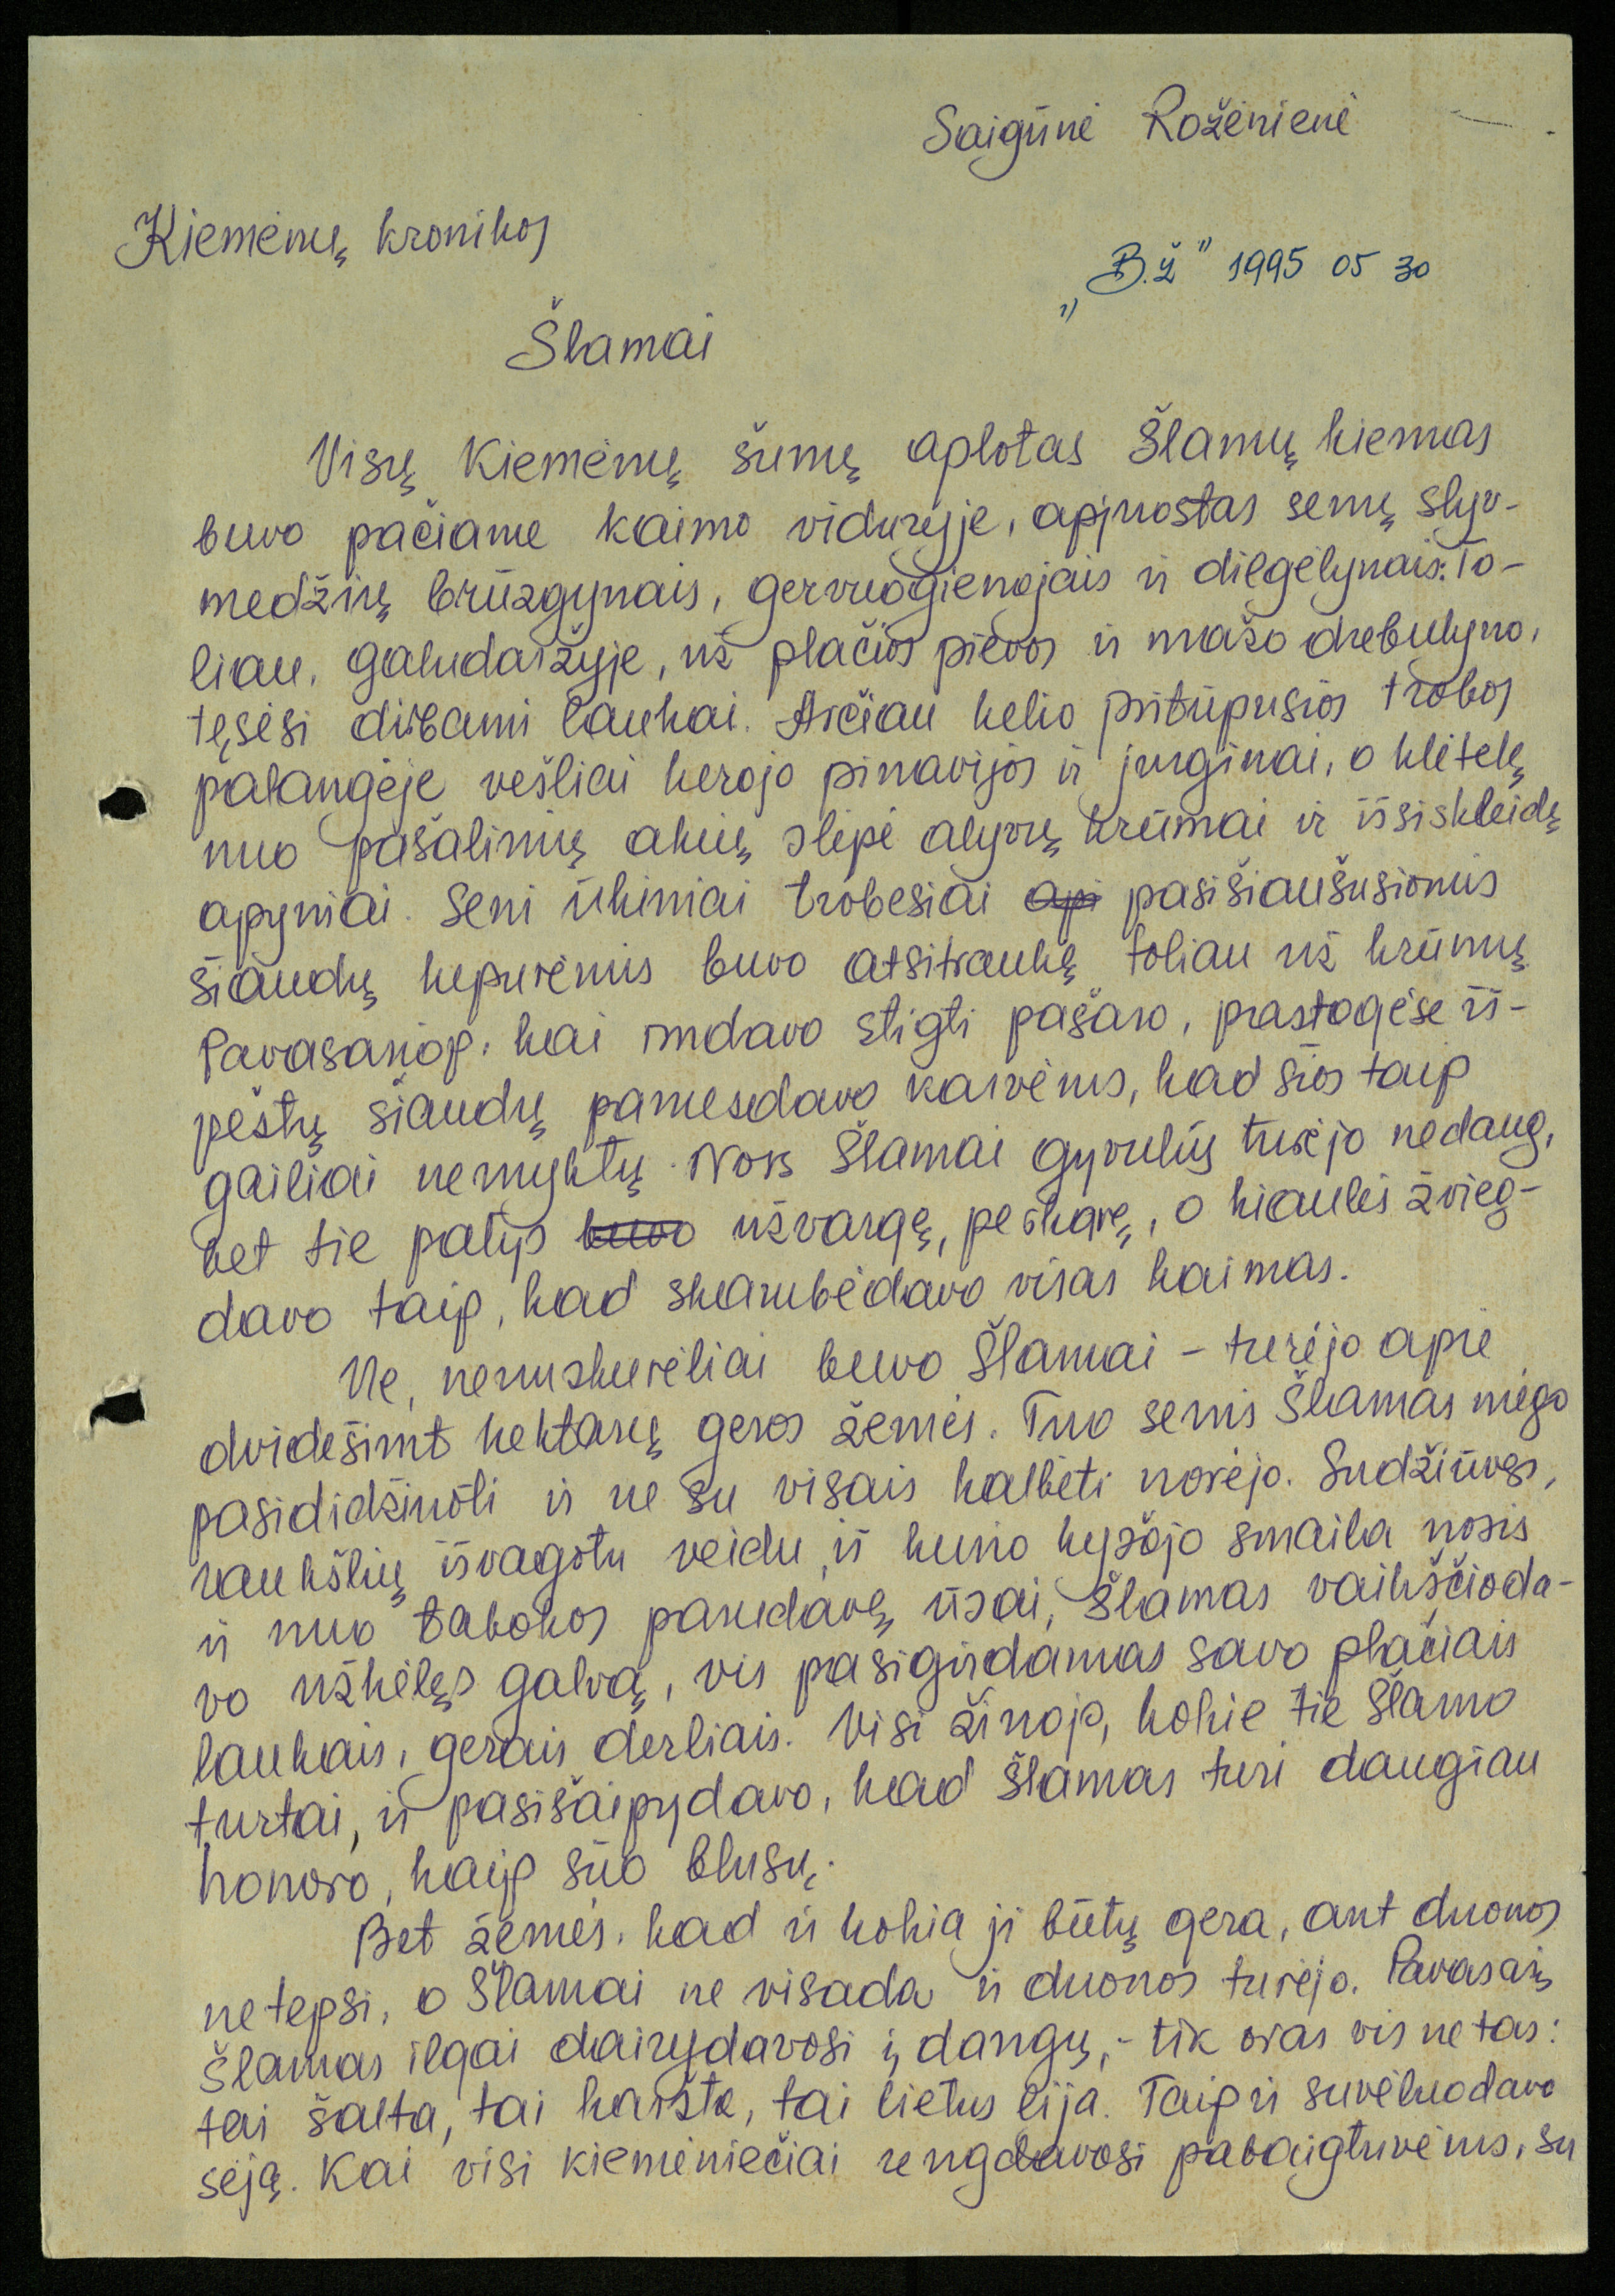 Saigūnė Roženienė
Kiemėnų kronikos
„B.Ž" 1995 05 30
Šlamai
Visų Kiemėnų šunų aplotas Šlamų kiemas
buvo pačiame kaimo viduryje, apjuostas senų slyv-
medžių brūzgynais, gervuogienojais ir dilgėlynais. To-
liau, galudaržyje, už plačios pievos ir mažo drebulyno,
tęsėsi dirbami laukai. Arčiau kelio pritūpusios trobos
palangėje vešliai kerojo pinavijos ir jurginai, o klėtelę
nuo pašalinių akių slėpė alyvų krūmai ir išsiskleidę
apyniai. Seni ūkiniai trobesiai api pasišiaušusiomis
šiaudų kepurėmis buvo atsitraukę toliau už krūmų.
Pavasariop, kai imdavo stigti pašaro, prastogėse iš-
pėštų šiaudų pamesdavo karvėms, kad šios taip
gailiai nemyktų. Nors Šlamai gyvulių turėjo nedaug,
bet tie patys buvo užvargę, perkarę, o kiaulės žvieg-
davo taip, kad skambėdavo visas kaimas.
Ne, nenuskurėliai buvo Šlamai – turėjo apie
dvidešimt hektarų geros žemės. Tuo senis Šlamas mėgo
pasididžiuoti ir ne su visais kalbėti norėjo. Sudžiūvęs,
raukšlių išvagotu veidu, iš kurio kyšojo smaila nosis
ir nuo tabokos parudavę ūsai, Šlamas vaikščioda-
vo užkėlęs galvą, vis pasigirdamas savo plačiais
laukais, gerais derliais. Visi žinojo, kokie tie Šlamo
turtai, ir pasišaipydavo, kad Šlamas turi daugiau
honoro, kaip šuo blusų.
Bet žemės, kad ir kokia ji būtų gera, ant duonos
netepsi, o Šlamai ne visada ir duonos turėjo. Pavasarį
Šlamas ilgai dairydavosi į dangų, – tik oras vis ne tas:
tai šalta, tai karšta, tai lietus lija. Taip ir suvėluodavo
sėją. Kai visi kiemėniečiai rengdavosi pabaigtuvėms, su